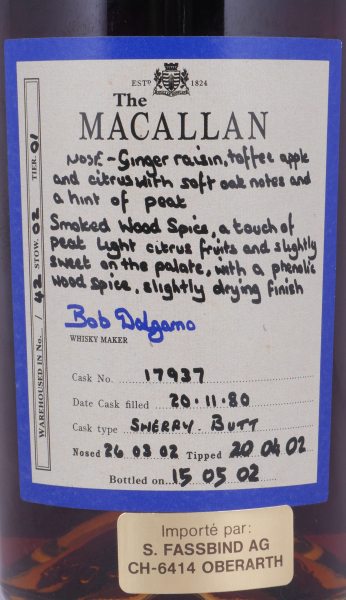 ESTD 1824
The
MACALLAN
NOSE - Ginger raisin, toffee apple
and citrus with soft oak notes and
a hint of peat
Smoked Wood Spice, a touch of
peat light citrus fruits and slightly
sweet on the palate, with a phenolic
wood spice, slightly drying finish
Bob Dalgarno
WHISKY MAKER
Cask No. 17937
Date Cask filled 20.11.80
Cask type SHERRY. BUTT
Nosed 26 03 02 Tipped 20 04 02
Bottled on 15 05 02
WAREHOUSED IN No. / 42 STOW. 02 TIER. 01
Importé par:
S. FASSBIND AG
CH-6414 OBERARTH